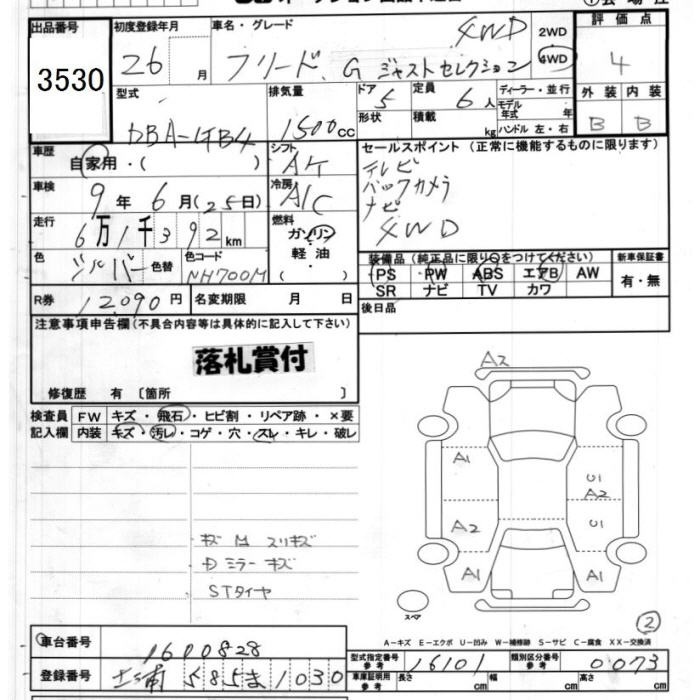 出品番号 初度登録年月 車名・グレード 2WD 評価点
3530 26月 フリード G ジャストセレクション 4WD 4WD 4
型式 排気量 ドア 5 定員 6人 ディーラー・並行 外装 内装
DBA-GB4 1500cc 形状 積載 kg モデル年式 年 B B
ハンドル 左・右
車歴 自家用・( ) シフト AT セールスポイント(正常に機能するものに限ります)
車検 9年6月(25日) 冷房 A/C テレビ
バックカメラ
走行 6万1千392km 燃料 ガソリン ナビ
軽油 4WD
・( )
色 シルバー 色替 色コード NH700M 装備品(純正品に限り○をつけてください) 新車保証書
PS PW ABS エアB AW 有・無
SR ナビ TV カワ
R券 12,090円 名変期限 月 日 後日品
注意事項申告欄(不具合内容等は具体的に記入して下さい)
落札賞付
修復歴 有 〔箇所 〕
検査員 FW キズ・飛石・ヒビ割・リペア跡・×要
記入欄 内装 キズ・汚レ・コゲ・穴・スレ・キレ・破レ
A2
A1
U1
A2
A2
U1
A1
A1
キズ M スリキズ
Dミラーキズ
STタイヤ
スペア
2
A-キズ E-エクボ U-凹み W-補修跡 S-サビ C-腐食 XX-交換済
車台番号 1600828
型式指定番号 16101 類別区分番号 0073
登録番号 土浦 585 ま 1030
車庫証明用参考 長さ cm 幅 cm 高さ cm